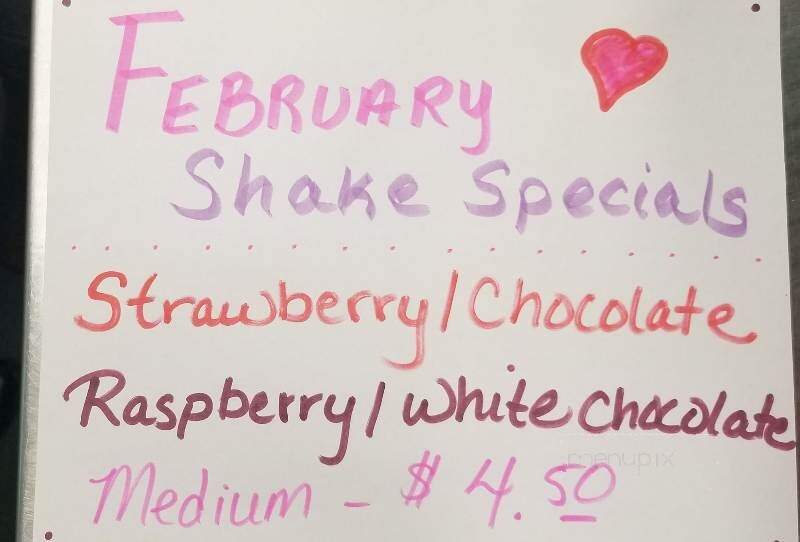 FEBRUARY
Shake Specials
Strawberry/Chocolate
Raspberry/White Chocolate
menupix
Medium - $4.50